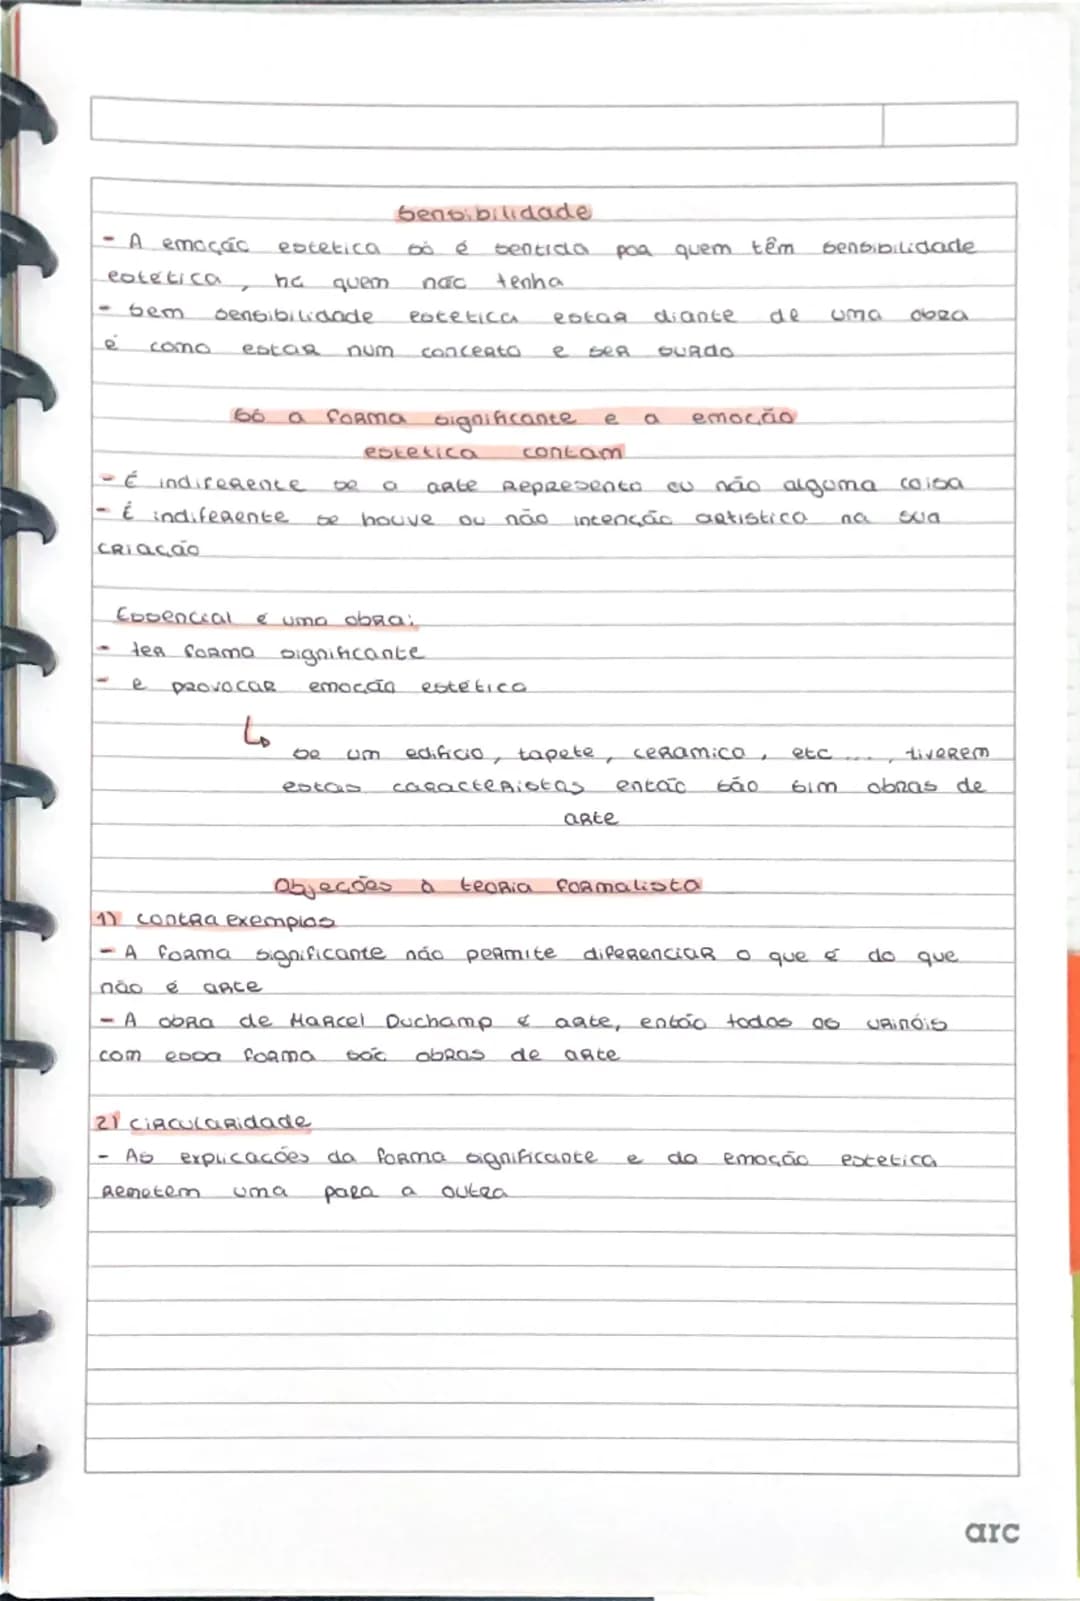 Sensibilidade
- A emoção estetica só é sentida por quem têm sensibilidade
estética, há quem não tenha
- Sem sensibilidade estetica estar diante de uma obra
é como estar num concerto e ser surdo
Só a forma significante e a emoção
estetica contam
- É indiferente se a arte representa ou não alguma coisa
- É indiferente se houve ou não intenção artistica na sua
criação
Essencial é uma obra:
- ter forma significante
- e provocar emoção estética
↳
se um edificio, tapete, ceramica, etc ..., tiverem
estas caracteristas então são sim obras de
arte
Objeções à teoria formalista
1) contra exemplos
- A forma significante não permite diferenciar o que é do que
não é arte
- A obra de Marcel Duchamp é arte, então todos os urinóis
com essa forma são obras de arte
2) circularidade
- As explicações da forma significante e da emoção estetica
remetem uma para a outra
arc